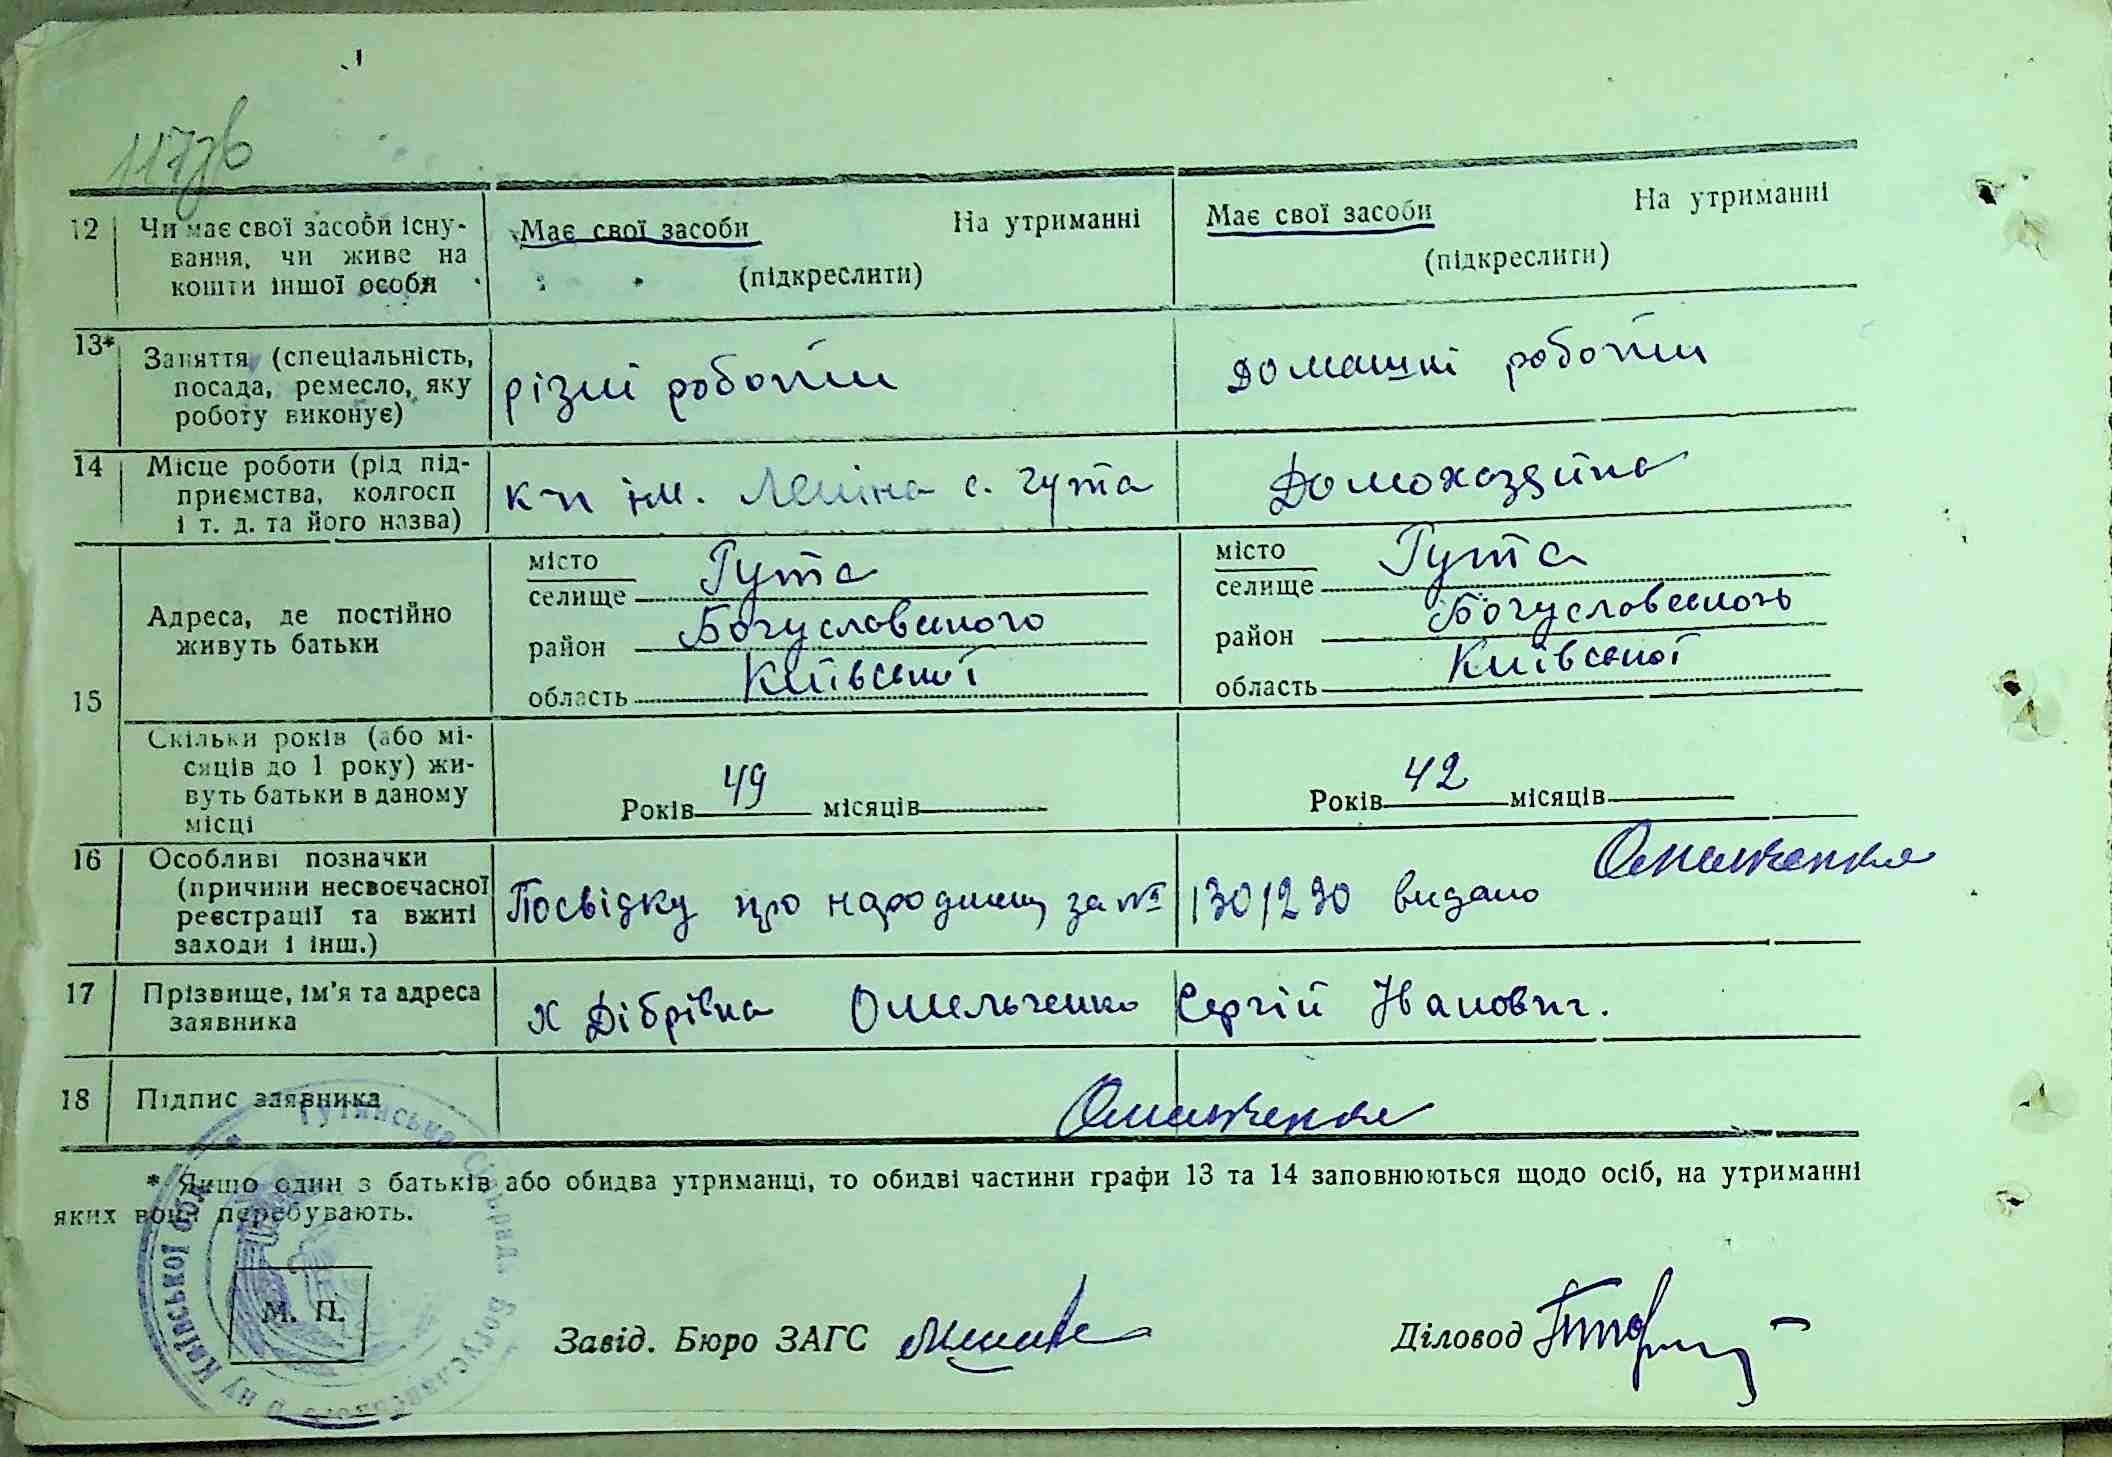 117зв
12 Чи має свої засоби існу- Має свої засоби На утриманні Має свої засоби На утриманні
вання, чи живе на (підкреслити) (підкреслити)
кошти іншої особи
13* Заняття (спеціальність,
посада, ремесло, яку різні роботи домашні роботи
роботу виконує)
14 Місце роботи (рід під-
приємства, колгосп к-п ім. Леніна с. Гута Домохазяйка
і т. д. та його назва)
15 Адреса, де постійно
живуть батьки
місто
селище Гута
район Богуславського
область Київської
місто
селище Гута
район Богуславського
область Київської
Скільки років (або мі-
сяців до 1 року) жи-
вуть батьки в даному Років 49 місяців Років 42 місяців
місці
16 Особливі позначки
(причини несвоєчасної Посвідку про народжен за № 130/230 видано
реєстрації та вжиті
заходи і інш.)
17 Прізвище, ім'я та адреса х Дібрівка Омельченко Сергій Іванович.
заявника
18 Підпис заявника
* Якщо один з батьків або обидва утриманці, то обидві частини графи 13 та 14 заповнюються щодо осіб, на утриманні
яких вони перебувають.
М. П.
Завід. Бюро ЗАГС Діловод
Гутянська Сільрад. Богуславського р ну Київської обл